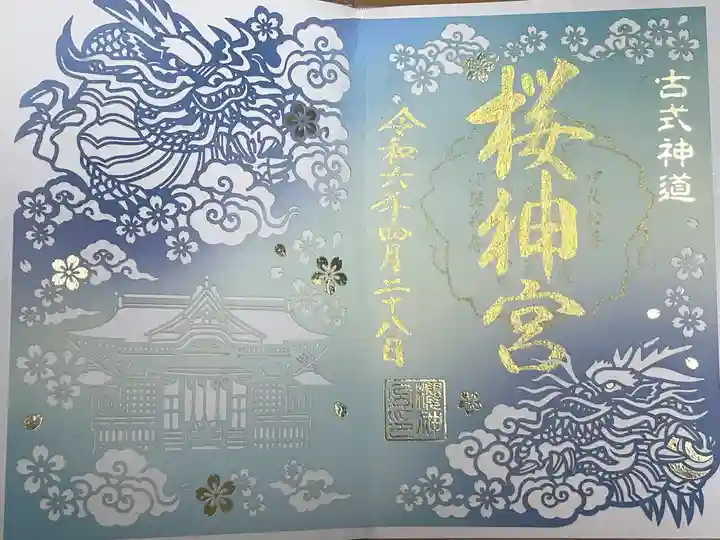 古式神道
桜神宮
令和六年四月二十八日